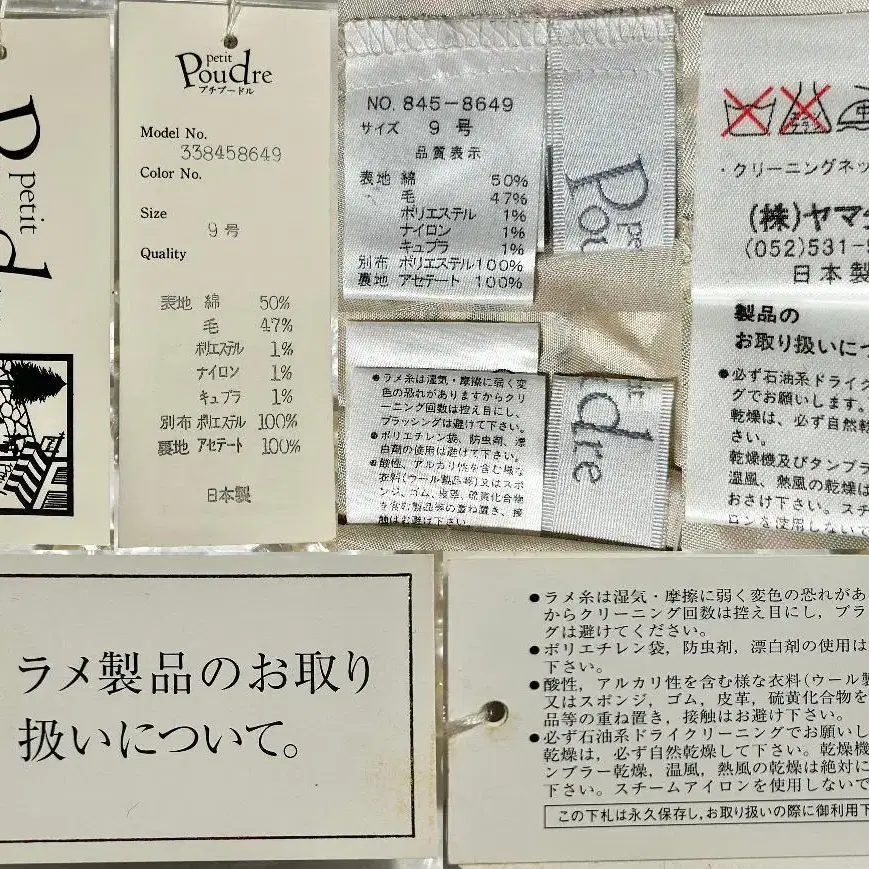 petit
P
d
petit
Poudre
プチプードル
Model No.
338458649
Color No.
Size
9号
Quality
表地 綿 50%
毛 47%
ポリエステル 1%
ナイロン 1%
キュプラ 1%
別布 ポリエステル 100%
裏地 アセテート 100%
日本製
NO. 845-8649
サイズ 9号
品質表示
表地 綿 50%
毛 47%
ポリエステル 1%
ナイロン 1%
キュプラ 1%
別布 ポリエステル100%
裏地 アセテート 100%
pe
Pou
●ラメ糸は湿気・摩擦に弱く変
色の恐れがありますからクリ
ーニング回数は控え目にし、
ブラッシングは避けて下さい。
●ポリエチレン袋、防虫剤、漂
白剤の使用は避けて下さい。
●酸性、アルカリ性を含む様な
衣料(ウール製品等)又はスポ
ンジ、ゴム、皮革、硫黄化合物
を含む製品等の重ね置き、接
触はお避け下さい。
it
dre
中
・クリーニングネッ
(株)ヤマ
(052)531-
日本製
製品の
お取り扱いにつ
●必ず石油系ドライク
グでお願いします。
乾燥は、必ず自然乾
さい。
乾燥機及びタンブラ
温風、熱風の乾燥は
おさけ下さい。スチー
ロンを使用しないで
ラメ製品のお取り
扱いについて。
●ラメ糸は湿気・摩擦に弱く変色の恐れがあ
からクリーニング回数は控え目にし，ブラ
グは避けてください。
●ポリエチレン袋，防虫剤，漂白剤の使用は
下さい。
●酸性，アルカリ性を含む様な衣料(ウール製
又はスポンジ，ゴム，皮革，硫黄化合物を
品等の重ね置き，接触はお避け下さい。
●必ず石油系ドライクリーニングでお願いし
乾燥は，必ず自然乾燥して下さい。乾燥機
ンブラー乾燥，温風，熱風の乾燥は絶対に
下さい。スチームアイロンを使用しないで
この下札は永久保存し,お取り扱いの際に御利用下